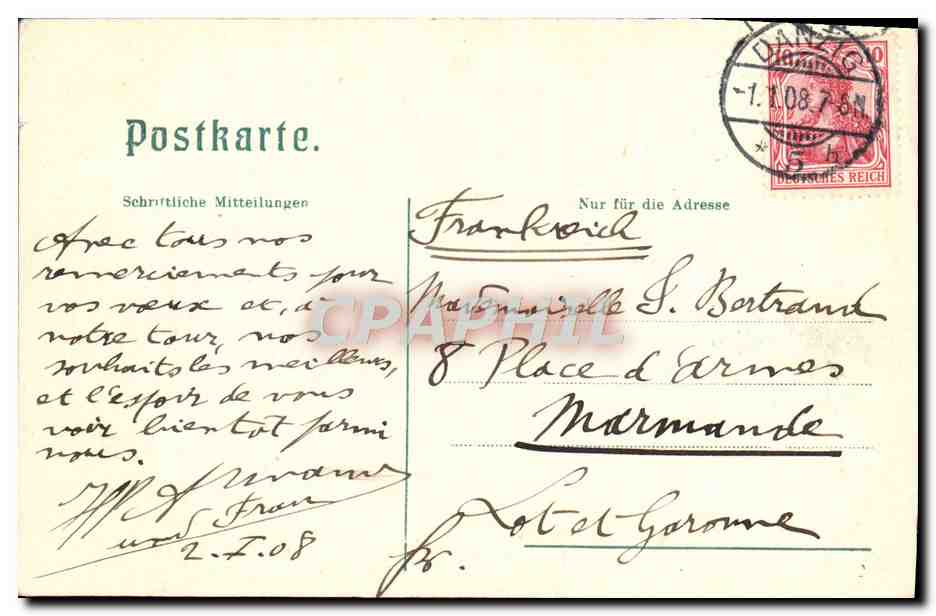 Postkarte.
DANZIG
1.1.08.7-8N.
* 5 h
10
DEUTSCHES REICH
Schriftliche Mitteilungen
Nur für die Adresse
Avec tous nos
remerciements pour
vos vœux et, à
notre tour, nos
souhaits les meilleurs,
et l'espoir de vous
voir bientôt parmi
nous.
und Frau
2.I.08
Frankreich
Mademoiselle S. Bertrand
8 Place d'armes
Marmande
Lot et Garonne
fr.
CPAPHIL